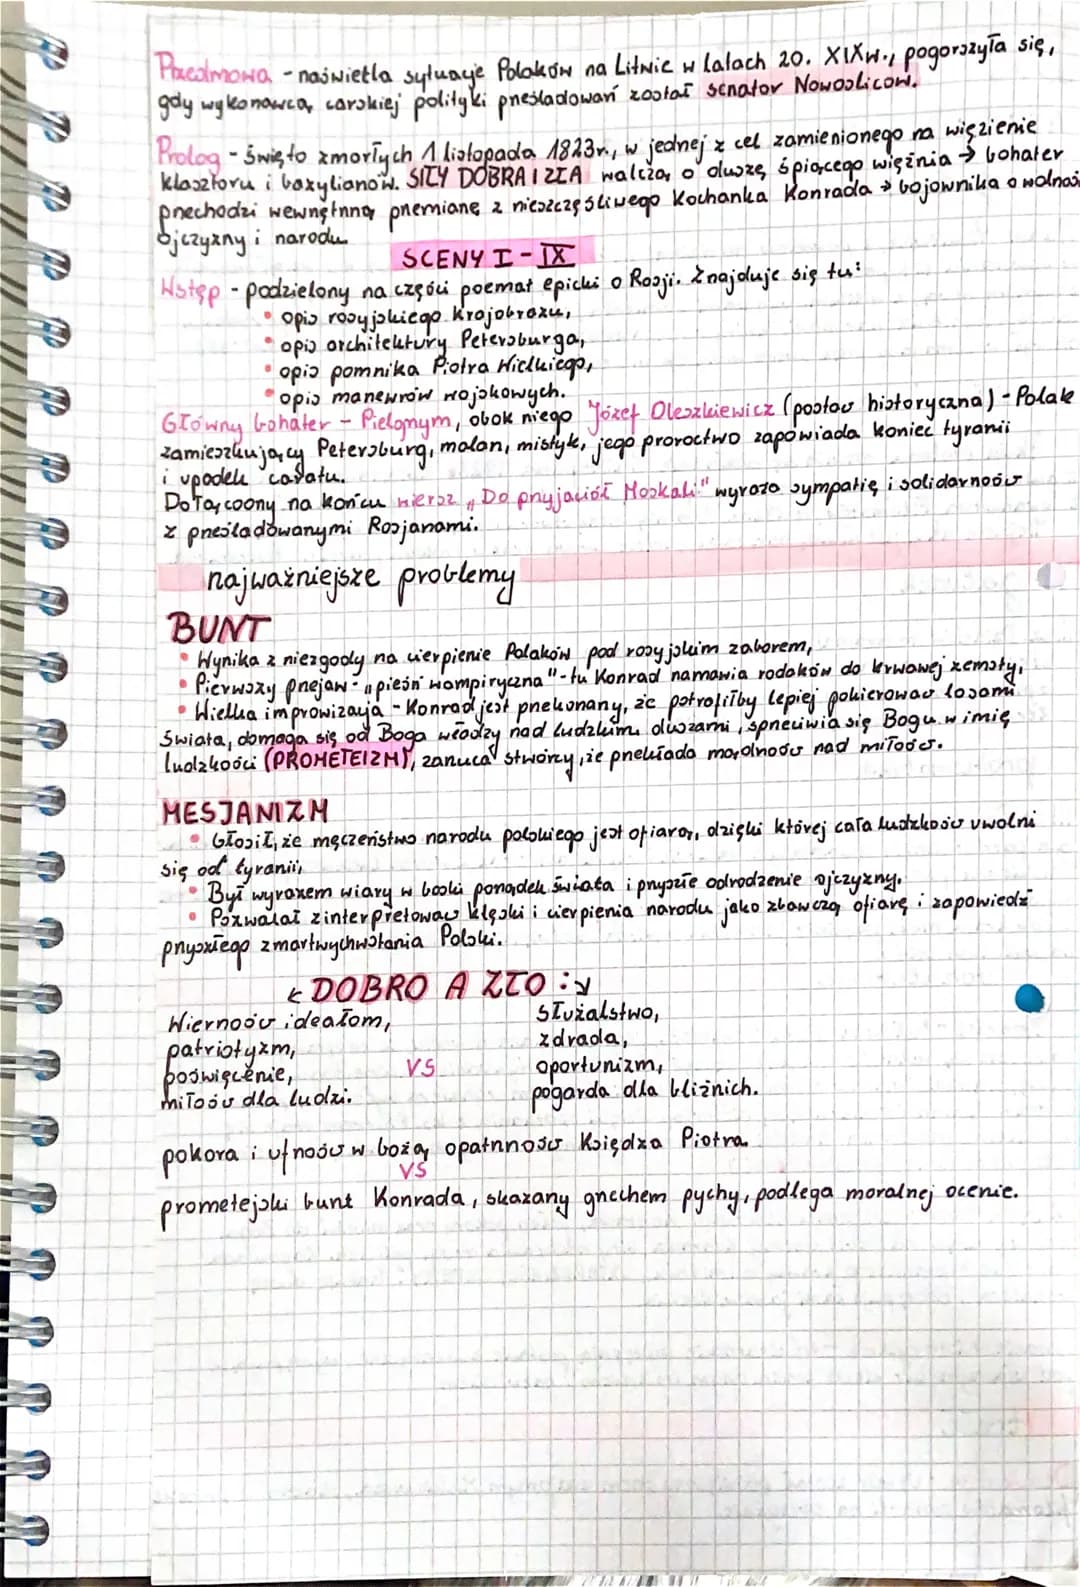 Przedmowa - naświetla sytuację Polaków na Litwie w latach 20. XIXw., pogorszyła się,
gdy wykonawcą carskiej polityki prześladowań został senator Nowosilcow.
Prolog - święto zmarłych 1 listopada 1823r., w jednej z cel zamienionego na więzienie
klasztoru i bazylianów. SIŁY DOBRA I ZŁA walczą o duszę śpiącego więźnia → bohater
przechodzi wewnętrzną przemianę z nieszczęśliwego kochanka Konrada → bojownika o wolność
ojczyzny i narodu.
SCENY I - IX
Wstęp - podzielony na części poemat epicki o Rosji. Znajduje się tu:
• opis rosyjskiego krajobrazu,
• opis architektury Petersburga,
• opis pomnika Piotra Wielkiego,
• opis manewrów wojskowych.
Główny bohater - Pielgrzym, obok niego Józef Oleszkiewicz (postać historyczna) - Polak
zamieszkujący Petersburg, malarz, mistyk, jego proroctwo zapowiada koniec tyranii
i upadek caratu.
Dołączony na końcu wiersz „Do przyjaciół Moskali" wyraża sympatię i solidarność
z prześladowanymi Rosjanami.
najważniejsze problemy
BUNT
• Wynika z niezgody na cierpienie Polaków pod rosyjskim zaborem,
• Pierwszy przejaw - „pieśń wampiryczna" - tu Konrad namawia rodaków do krwawej zemsty,
• Wielka improwizacja - Konrad jest przekonany, że potrafiłby lepiej pokierować losami
świata, domaga się od Boga władzy nad ludzkimi duszami, sprzeciwia się Bogu w imię
ludzkości (PROMETEIZM), zarzuca stwórcy, że przekłada mądrość nad miłość.
MESJANIZM
• Głosił, że męczeństwo narodu polskiego jest ofiarą, dzięki której cała ludzkość uwolni
się od tyranii,
• Był wyrazem wiary w boski porządek świata i przyszłe odrodzenie ojczyzny.
• Pozwalał zinterpretować klęski i cierpienia narodu jako zbawczą ofiarę i zapowiedź
przyszłego zmartwychwstania Polski.
← DOBRO A ZŁO : ↘
Wierność ideałom,
patriotyzm,
poświęcenie,
miłość dla ludzi.
VS
służalstwo,
zdrada,
oportunizm,
pogarda dla bliźnich.
pokora i ufność w bożą opatrzność Księdza Piotra
VS
prometejski bunt Konrada, skazany grzechem pychy, podlega moralnej ocenie.